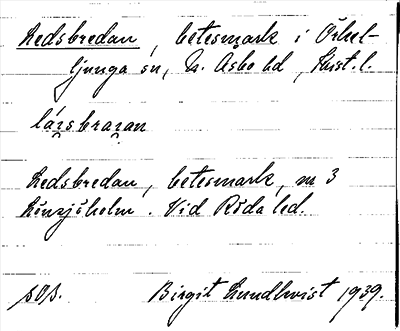 Ledsbredan, betesmark i Örkel-
ljunga sn, N. Asbo hd, Krist. l.
Ledsbredan, betesmark, nr 3
Lönsjöholm. Vid Röda led.
sOs. Birgit Lundkvist 1939.